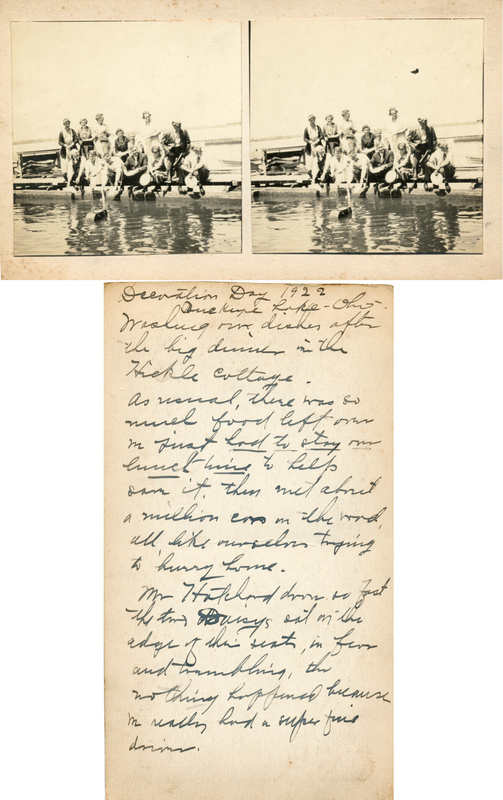 Decoration Day 1922
Buckeye Lake - Ohio.
Washing our dishes after
the big dinner in the
Hickle Cottage.
As usual, there was so
much food left over
we just had to stay on
lunch time to help
save it. Then met about
a million cars on the road,
all, like ourselves trying
to hurry home.
Mr Hatchard drove so fast
the two Daisys sat on the
edge of their seats, in fear
and trembling, tho
nothing happened because
we really had a super fine
driver.